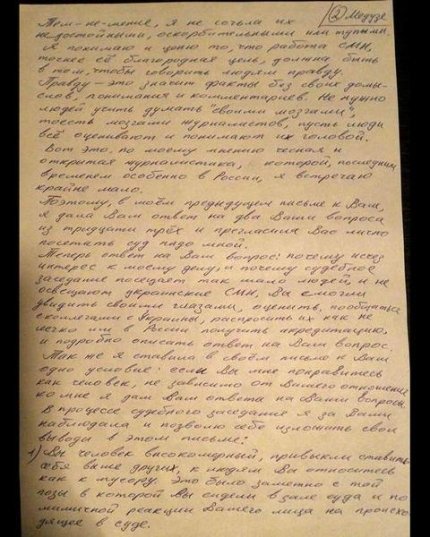 ② Медузе
Тем-не-менее, я не сочла их
недостойными, оскорбительными или тупыми.
Я понимаю и ценю то, что работа СМИ,
точнее её благородная цель, должна быть
в том, чтобы говорить людям правду.
Правду - это значит факты без своих домы-
слов, понимания и комментариев. Не нужно
людей учить думать "своими мозгами",
тоесть мозгами журналистов, пусть люди
всё оценивают и понимают их головой.
Вот это, по моему мнению честная и
открытая журналистика, которой, последним
временем особенно в России, я встречаю
крайне мало.
Поэтому, в моём предыдущем письме к Вам,
я дала Вам ответ на два Ваши вопроса
из тридцати трёх и пригласила Вас лично
посетить суд надо мной.
Теперь ответ на Вам вопрос: почему исчез
интерес к моему делу, и почему судебное
заседание посещает так мало людей, и не
освещают украинские СМИ, Вы смогли
увидить своими глазами, оценить, пообщаться
с коллегами с Украины, распросить их как не
легко им в России получить акредитацию,
и подробно описать ответ на Вам вопрос.
Так же я ставила в своём письме к Вам
одно условие: если Вы мне понравитесь
как человек, не зависимо от Вашего отношения
ко мне я дам Вам ответ на Ваши вопроса.
В процессе судебного заседания я за Вами
наблюдала и позволю себе изложить свои
выводы в этом письме:
1) Вы человек високомерный, привыкли ставить
себя выше других, к людям Вы относитесь
как к мусору. Это было заметно с той
позы в которой Вы сидели в зале суда и по
мимичной реакции Вашего лица на происхо-
дящее в суде.